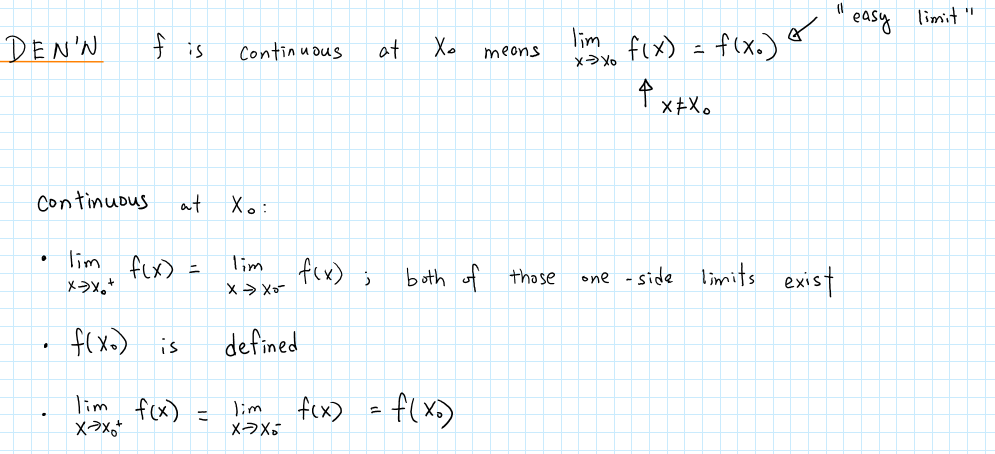 "easy limit"
DEN'N f is continuous at x₀ means lim x→x₀ f(x) = f(x₀)
x≠x₀
continuous at x₀:
• lim x→x₀⁺ f(x) = lim x→x₀⁻ f(x) ; both of those one-side limits exist
• f(x₀) is defined
• lim x→x₀⁺ f(x) = lim x→x₀⁻ f(x) = f(x₀)